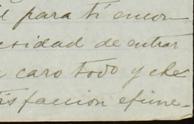 para ti encon
esidad de entrar
caro todo y che
isfaccion efime